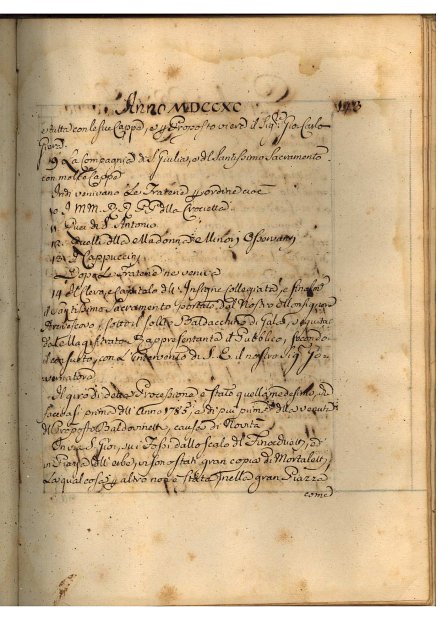 Anno MDCCXC 193
e tutta con le sue Cappe, e p Proposto vi era il Sig.r Gio Carlo
9 La Compagnia di S. Giuliano del Santissimo Sacramento
con molte Cappe
Indi venivano Le Fraterie p ordine cioe
10 I MM. RR. PP. della Crocetta
11 Quei di S. Antonio
12 Quelli della Madonna Minori Osservanti
13 I Cappuccini
Dopo Le Fraterie ne veniva
14 il Clero, e Capitolo dell' Insigne Collegiata, e fin
Santissimo Sacramento portato dal Nostro Monsignore
Arcivescovo sotto il solito Baldacchino di Gala,
dalla Magistrata Rappresentante il Pubblico, secondo
il consueto, con l'intervento di S. E. il nostro Sig.r Go-
vernatore
Il giro di detta Processione e stato quello medesimo,
facevasi prima dell' Anno 1785, e di piu prima della venuta
di Proposto Baldovinetti, causa di Novita
In via S. Gio, sui Fossi dallo scalo del
in Piazza dell' erbe, vi son stati gran copia di Mortaletti,
La qual cosa p altro non e stata nella gran Piazza
come